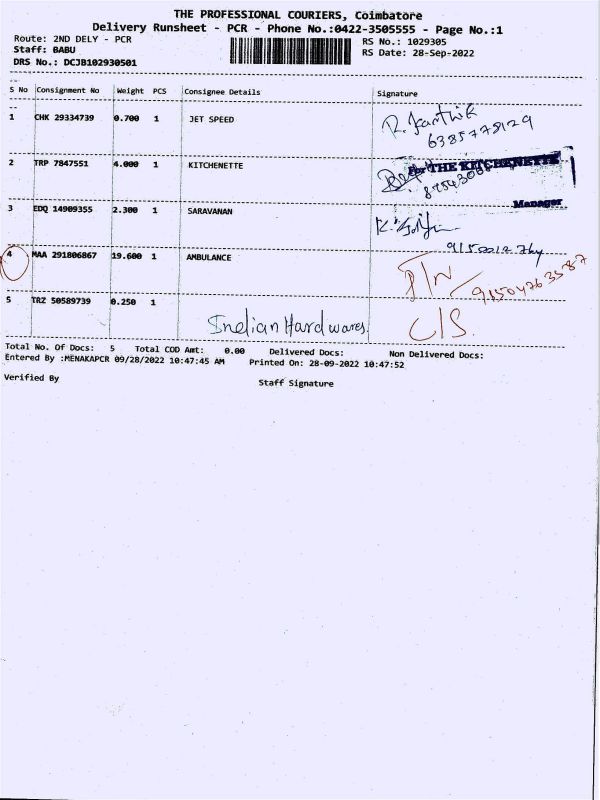 THE PROFESSIONAL COURIERS, Coimbatore
Delivery Runsheet - PCR - Phone No.:0422-3505555 - Page No.:1
Route: 2ND DELY - PCR
Staff: BABU
DRS No.: DCJB102930501
RS No.: 1029305
RS Date: 28-Sep-2022
S No Consignment No Weight PCS Consignee Details Signature
1 CHK 29334739 0.700 1 JET SPEED
R. Karthik
6385778129
2 TRP 7847551 4.000 1 KITCHENETTE
For THE KITCHENETTE
Manager
3 EDQ 14909355 2.300 1 SARAVANAN
4 MAA 291806867 19.600 1 AMBULANCE
91504763587
5 TRZ 50589739 0.250 1
Indian Hardwares
C/S.
Total No. Of Docs: 5 Total COD Amt: 0.00 Delivered Docs: Non Delivered Docs:
Entered By :MENAKAPCR 09/28/2022 10:47:45 AM Printed On: 28-09-2022 10:47:52
Verified By
Staff Signature